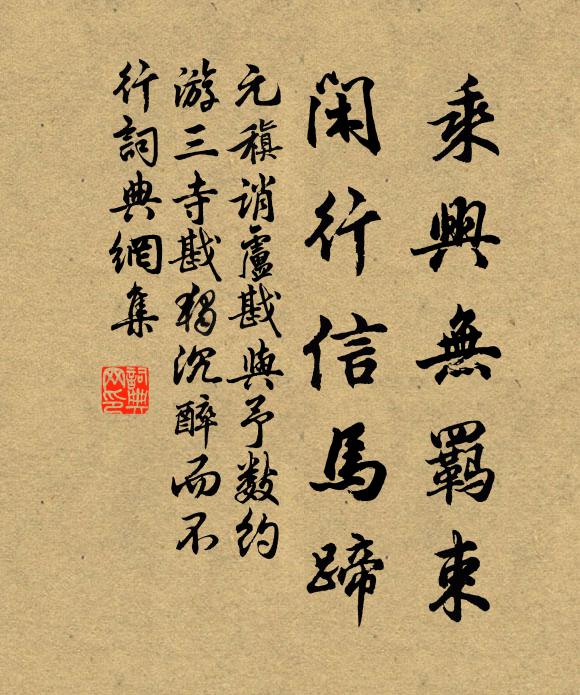 乘興無羈束
閑行信馬蹄
元稹誚盧戡與予數約
游三寺戡獨沉醉而不
行詞典網集
詞典网印